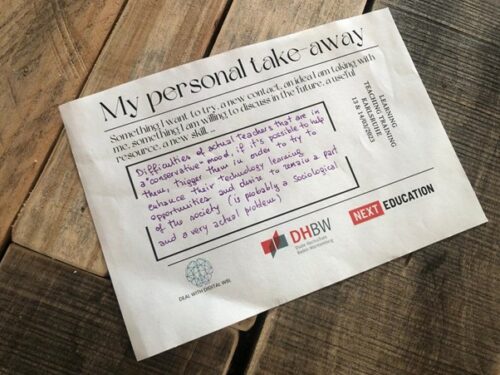 My personal take-away
Something I want to try, a new contact, an idea I am taking with
me, something I am willing to discuss in the future, a useful
resource, a new skill, ...
LEARNING
TEACHING TRAINING
KARLSRUHE
13 & 14/02/2023
Difficulties of actual teachers that are in
a "conservative" mood, if it's possible to help
them, trigger them in order to try to
enhance their technology learning
opportunities and desire to remain a part
of the society (is probably a sociological
and a very actual problem)
DEAL WITH DIGITAL WBL
DHBW
Duale Hochschule
Baden-Württemberg
NEXT EDUCATION